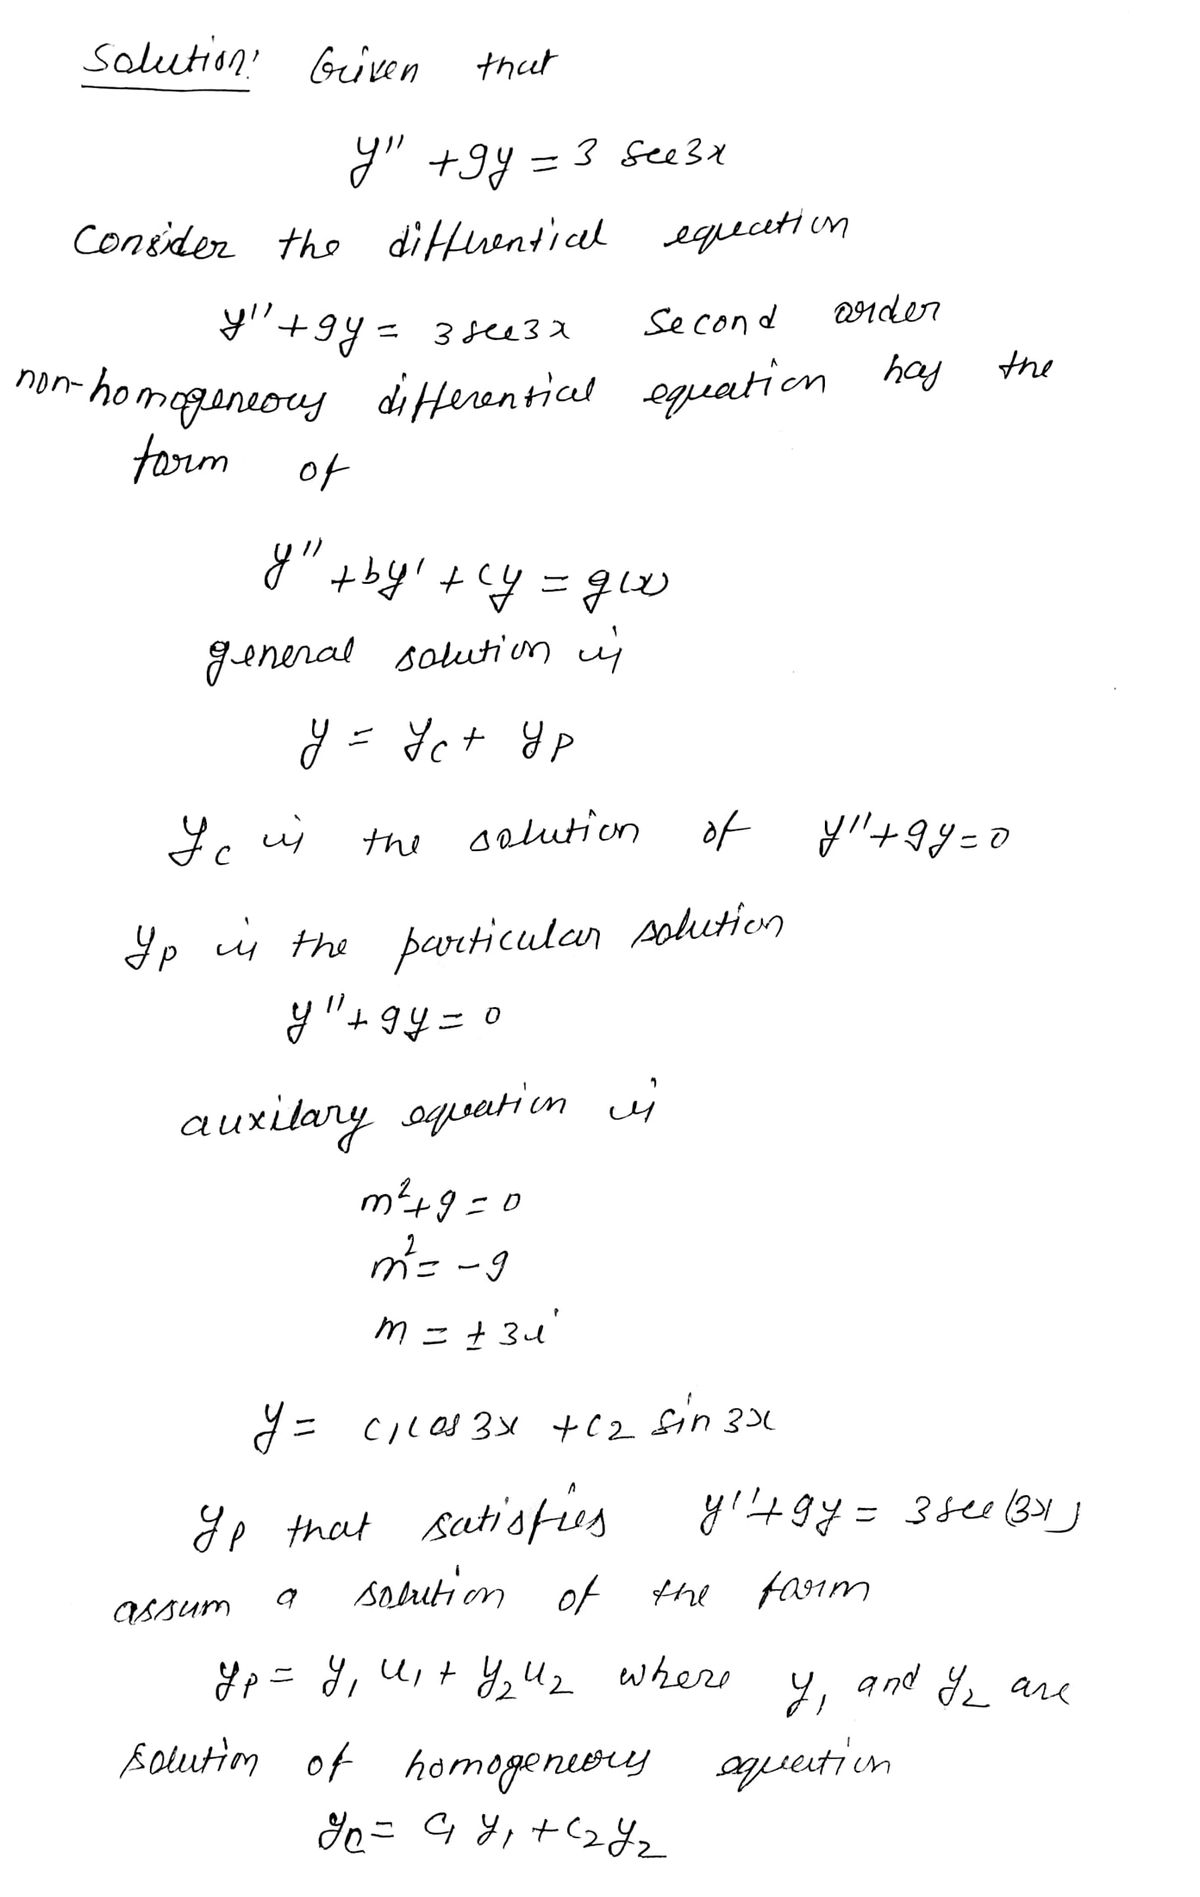 Solution: Given that
y'' + 9y = 3 sec3x
Consider the differential equation
y'' + 9y = 3 sec3x second order
non-homogeneous differential equation has the
form of
y'' + by' + cy = g(x)
general solution is
y = yc + yp
yc is the solution of y'' + 9y = 0
yp is the particular solution
y'' + 9y = 0
auxilary equation is
m² + 9 = 0
m² = -9
m = ± 3i
y = c1 cos 3x + c2 sin 3x
yp that satisfies y'' + 9y = 3 sec(3x)
assum a solution of the form
yp = y1 u1 + y2 u2 where y1 and y2 are
solution of homogeneous equation
yc = c1 y1 + c2 y2